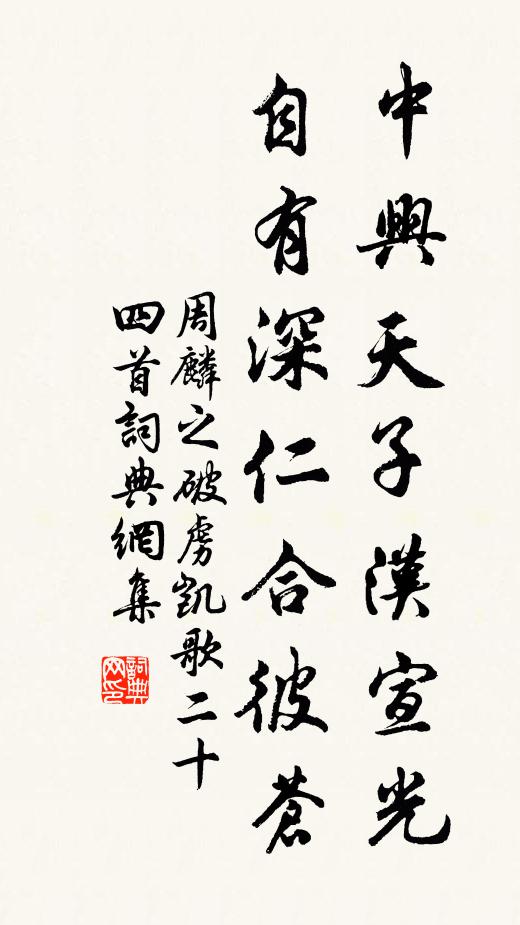 中興天子漢宣光
自有深仁合彼蒼
周麟之破虜凱歌二十
四首詞典網集
詞典
网印